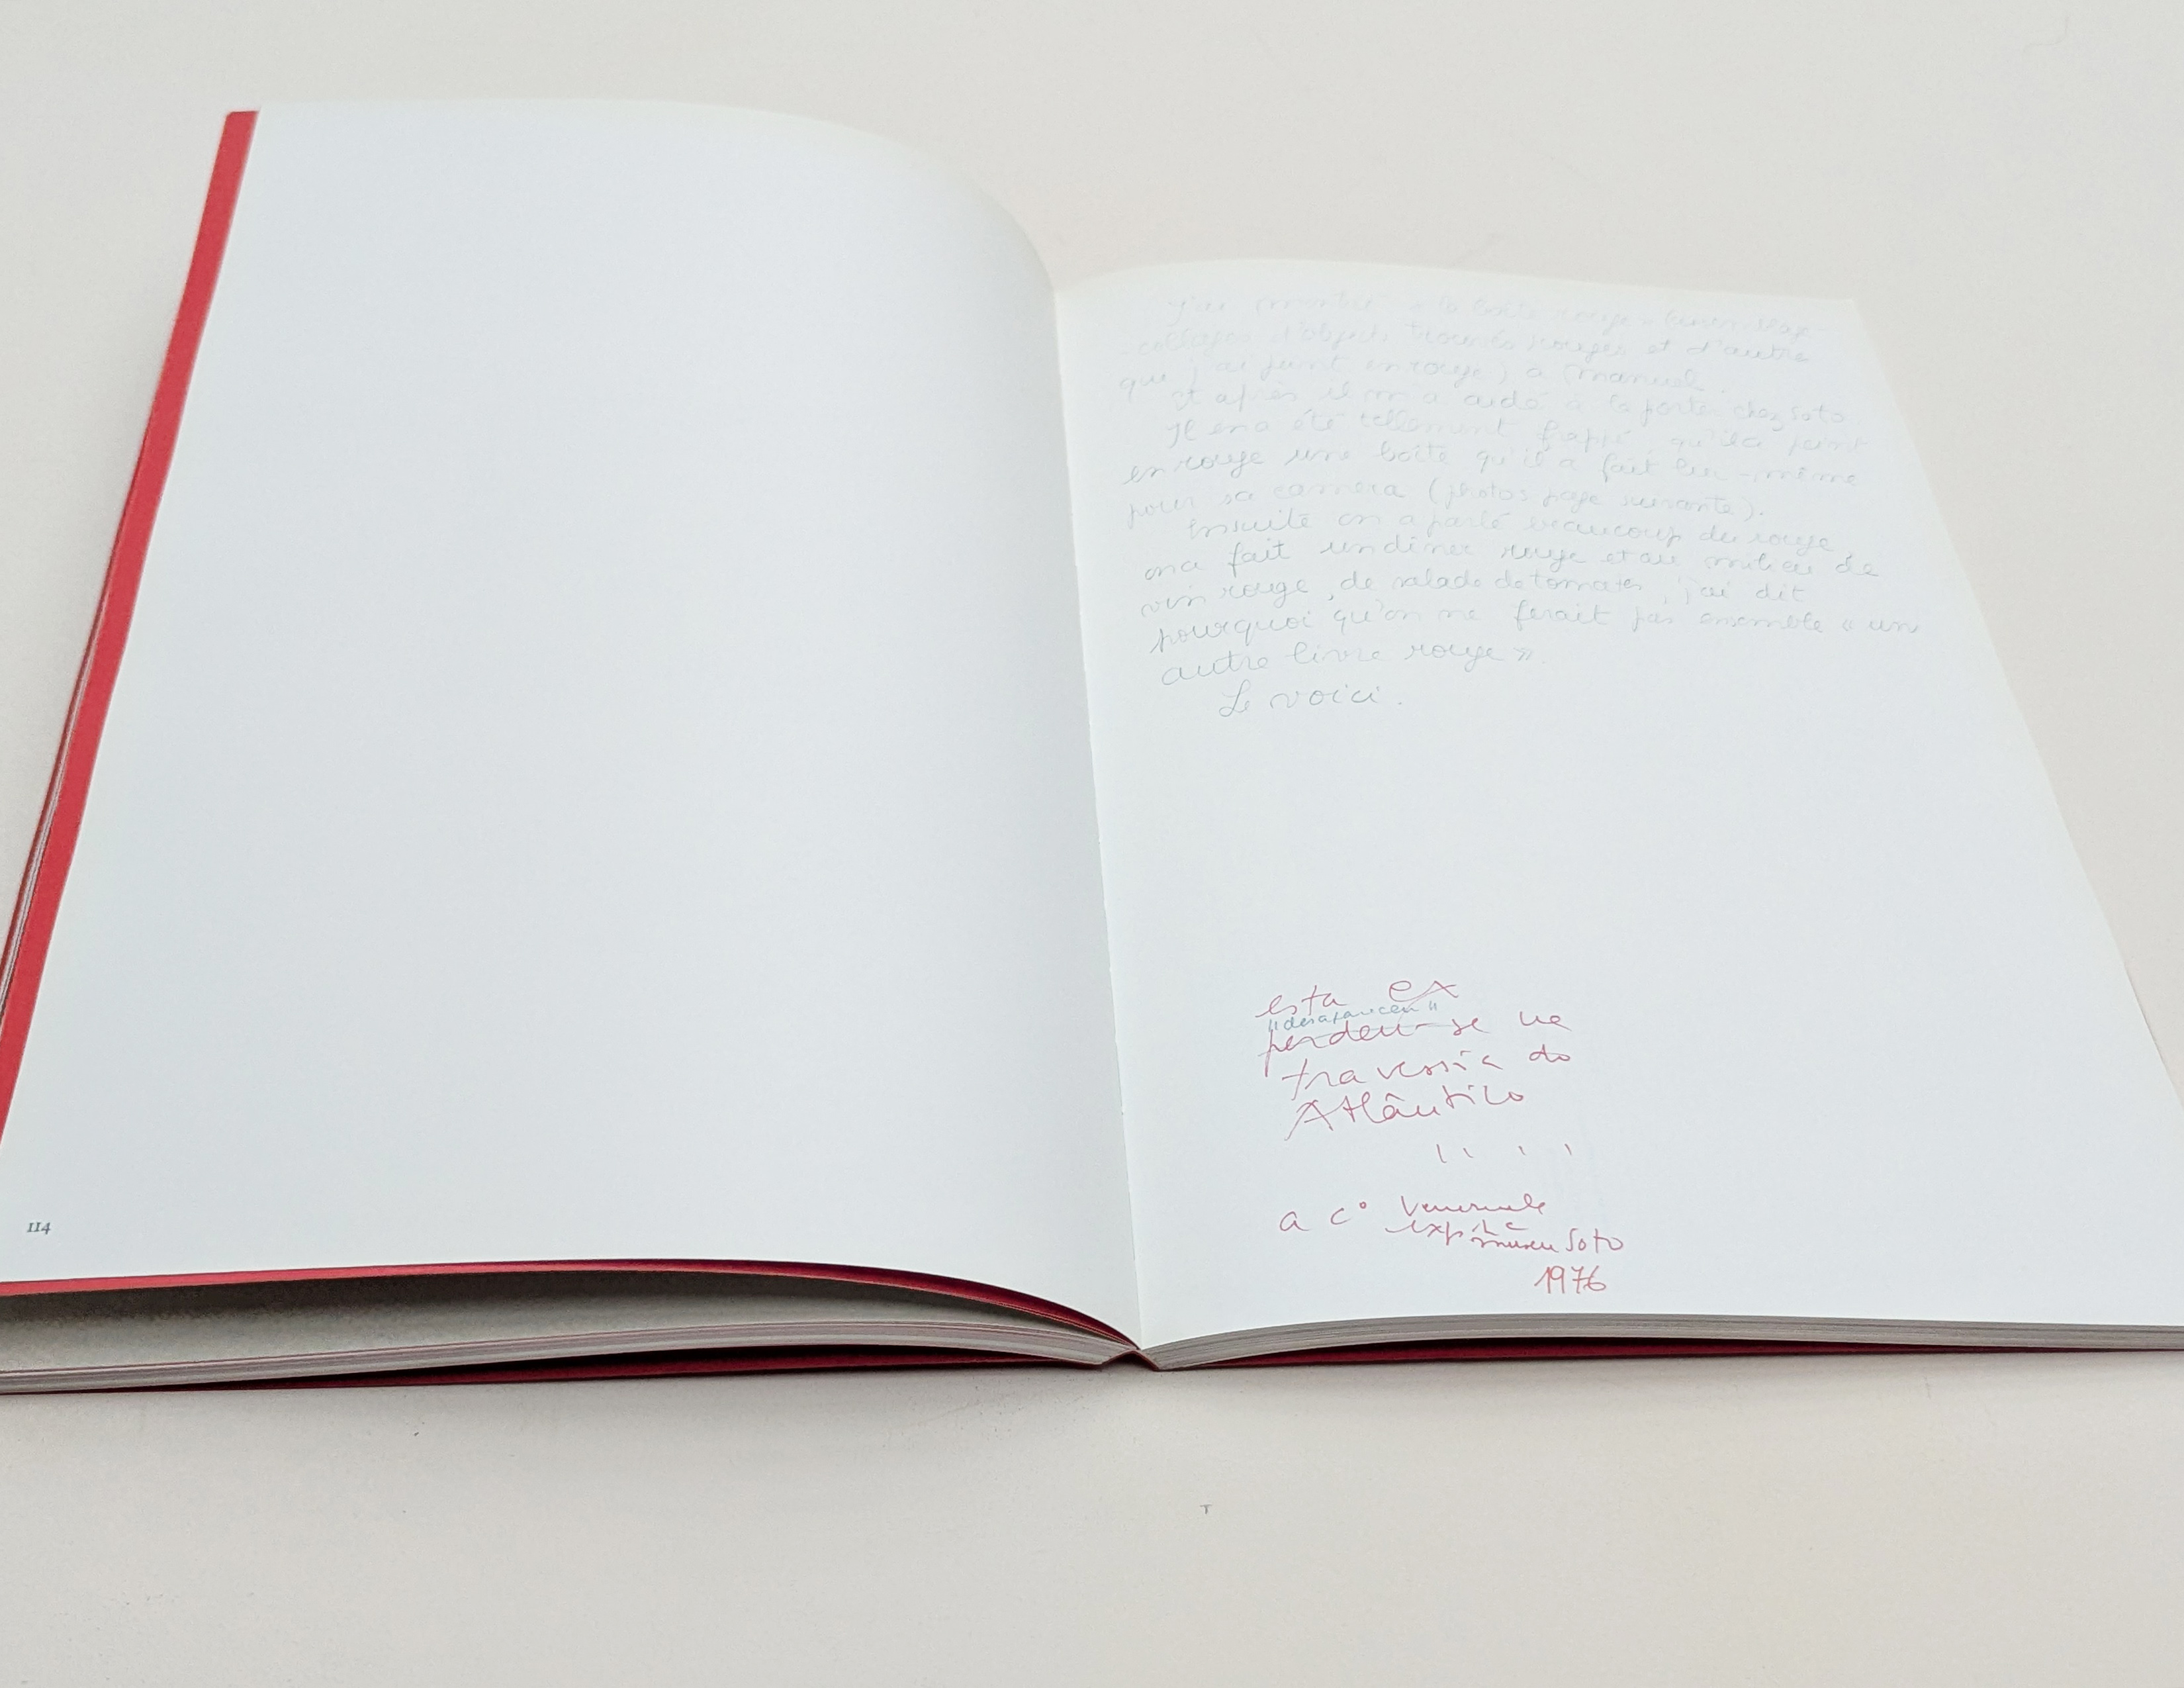 114
J'ai montré « la boîte rouge »
collages d'objets trouvés rouges et d'autre
que j'ai peint en rouge) a Manuel.
Et après il m'a aidé à la porter chez Soto
Il en a été tellement frappé qu'il a peint
en rouge une boîte qu'il a fait lui-même
pour sa camera (photos page suivante).
Ensuite on a parlé beaucoup du rouge
on a fait un diner rouge et au milieu de
vin rouge, de salade de tomates, j'ai dit
pourquoi qu'on ne ferait pas ensemble « un
autre livre rouge ».
Le voici.
esta ex
"desapareceu"
perdeu-se na
travessia do
Atlântico
a c°
museu Soto
1976